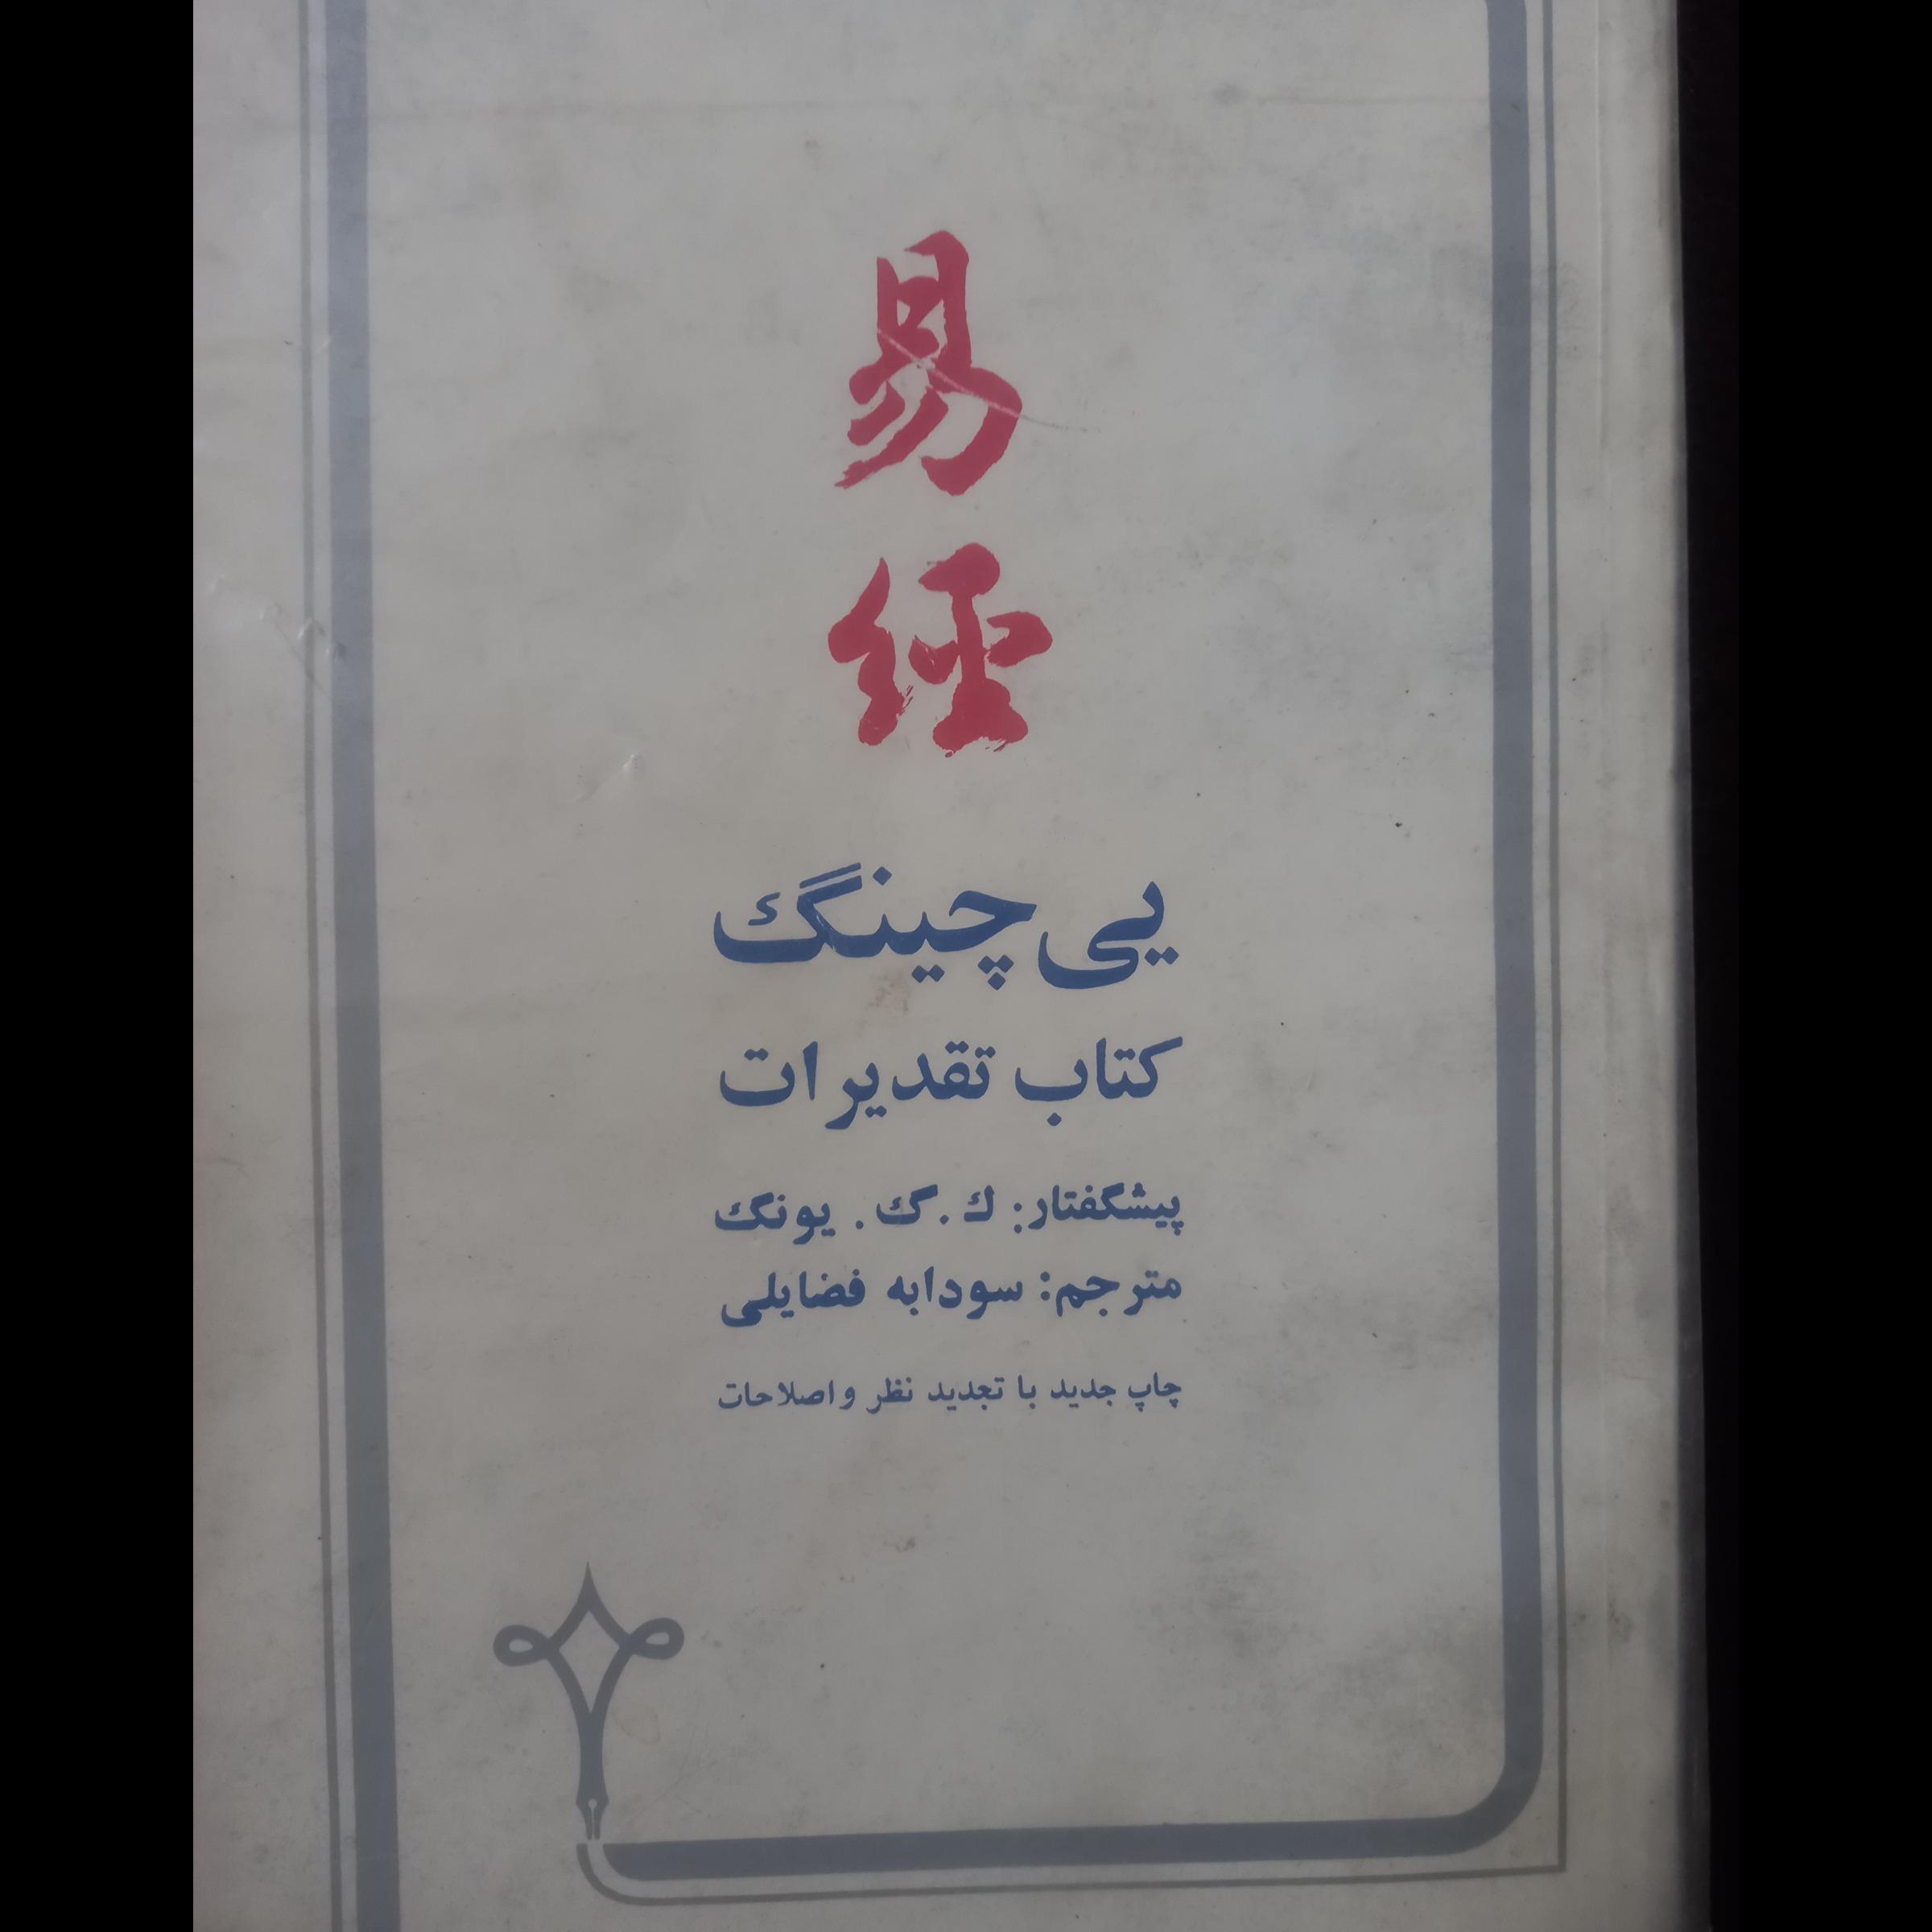 易
經
یی چینگ
کتاب تقدیرات
پیشگفتار: ك. گ. یونگ
مترجم: سودابه فضایلی
چاپ جدید با تجدید نظر و اصلاحات